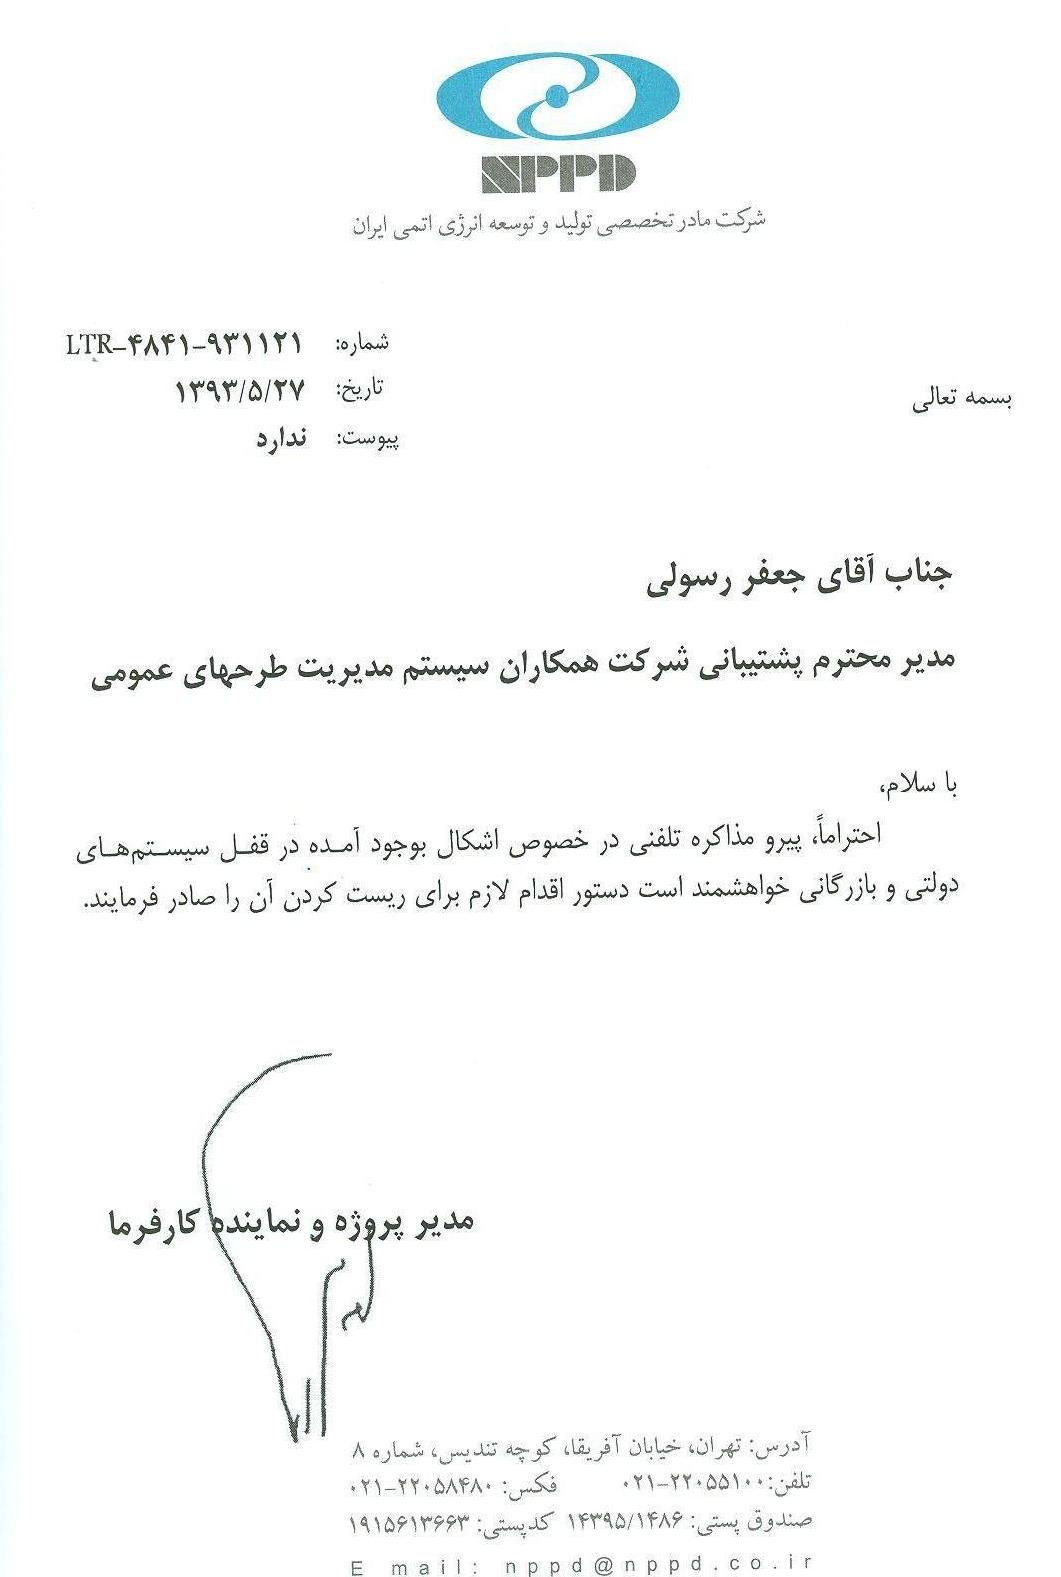 NPPD
شرکت مادر تخصصی تولید و توسعه انرژی اتمی ایران
شماره: LTR-۴۸۴۱-۹۳۱۱۲۱
تاریخ: ۱۳۹۳/۵/۲۷
بسمه تعالی
پیوست: ندارد
جناب آقای جعفر رسولی
مدیر محترم پشتیبانی شرکت همکاران سیستم مدیریت طرحهای عمومی
با سلام،
احتراماً، پیرو مذاکره تلفنی در خصوص اشکال بوجود آمده در قفل سیستم‌های
دولتی و بازرگانی خواهشمند است دستور اقدام لازم برای ریست کردن آن را صادر فرمایند.
مدیر پروژه و نماینده کارفرما
آدرس: تهران، خیابان آفریقا، کوچه تندیس، شماره ۸
تلفن: ۰۲۱-۲۲۰۵۵۱۰۰ فکس: ۰۲۱-۲۲۰۵۸۴۸۰
صندوق پستی: ۱۴۳۹۵/۱۴۸۶ کدپستی: ۱۹۱۵۶۱۳۶۶۳
E mail: nppd@nppd.co.ir